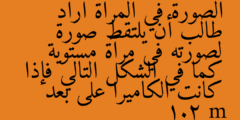 الصورة في المرآة أراد
طالب أن يلتقط صورة
لصورته في مرآة مستوية
كما في الشكل التالي فإذا
كانت الكاميرا على بعد
١٠٢ m